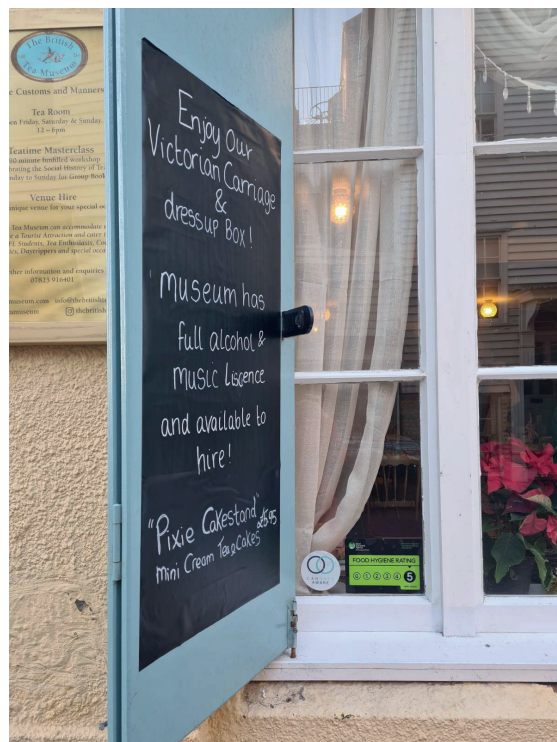 The British
Tea Museum
Customs and Manners
Tea Room
Friday, Saturday & Sunday,
12 – 6pm
Teatime Masterclass
90 minute funfilled workshop
the Social History of
to Sunday for Group
Venue Hire
unique venue for your special
Tea Museum can accommodate
a Tourist Attraction and cater
Students, Tea Enthusiasts,
Daytrippers and special
information and enquiries
07825 916401
Enjoy Our
Victorian Carriage
&
dressup Box!
Museum has
full alcohol &
Music Liscence
and available to
hire!
"Pixie Cakestand" £5.95
Mini Cream Tea & Cakes
AWARE
FOOD HYGIENE RATING
0 1 2 3 4 5